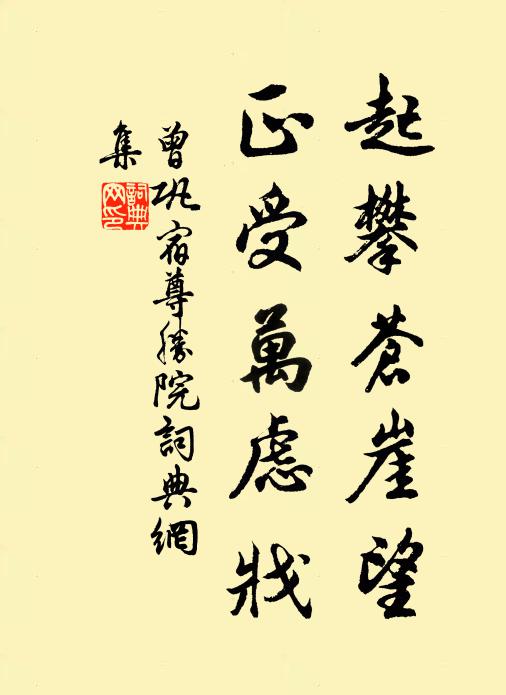 起攀蒼崖望
正受萬慮戕
曾巩宿尊勝院詞典網
集
詞典網印